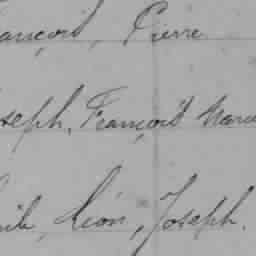 ançois, Pierre
seph, François Marie
ile, Léon, Joseph.